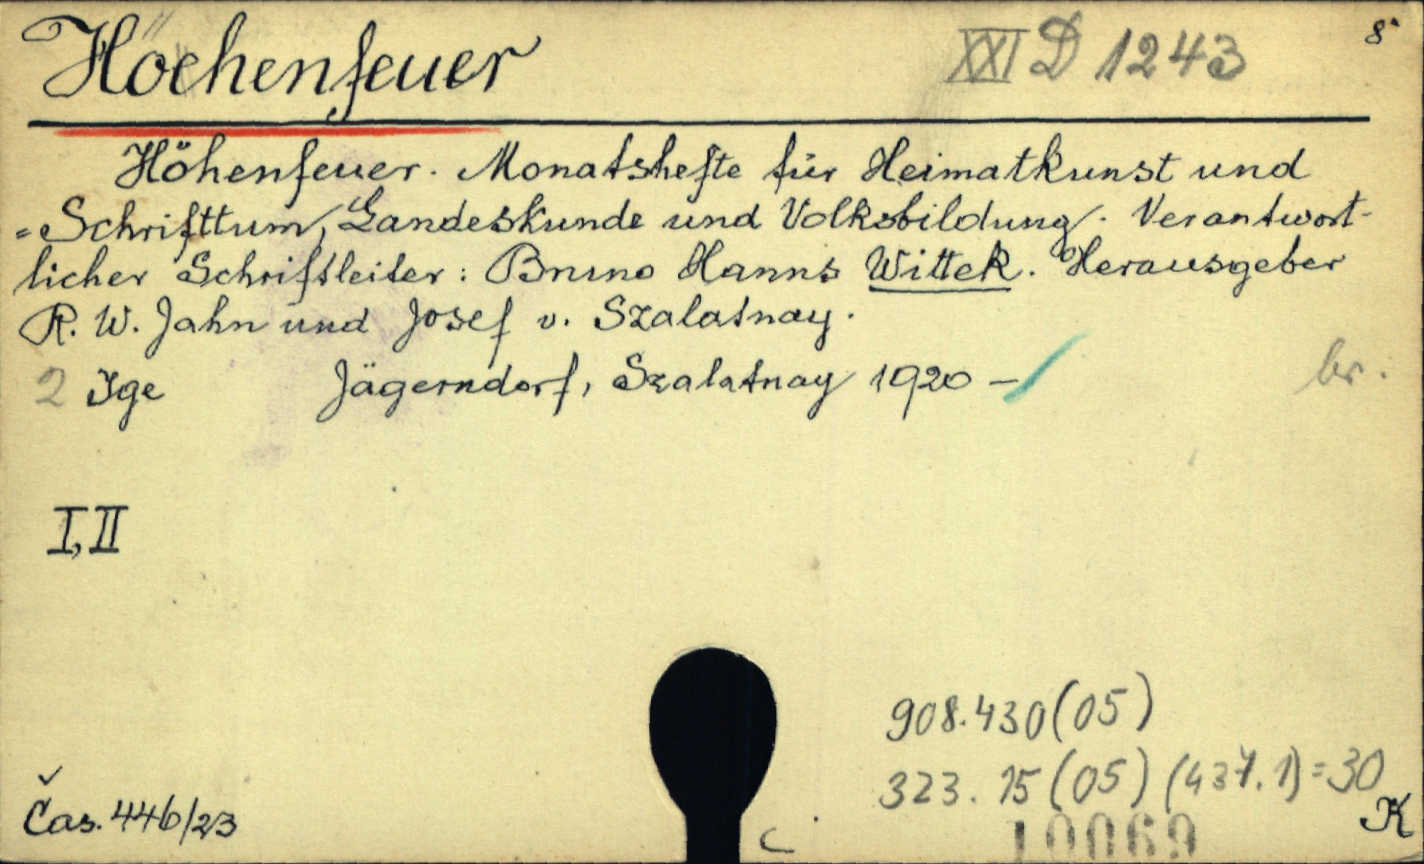 Höehenfeuer XXI D 1243 8°
Höhenfeuer. Monatshefte für Heimatkunst und
=Schrifttum, Landeskunde und Volksbildung. Verantwort-
licher Schriftleiter: Bruno Hanns Wittek. Herausgeber
R. W. Jahn und Josef v. Szalatnay.
2 Jge Jägerndorf, Szalatnay 1920 – br.
I, II
908.430(05)
323.15(05)(437.1)=30
Čas. 446/23 K
10069